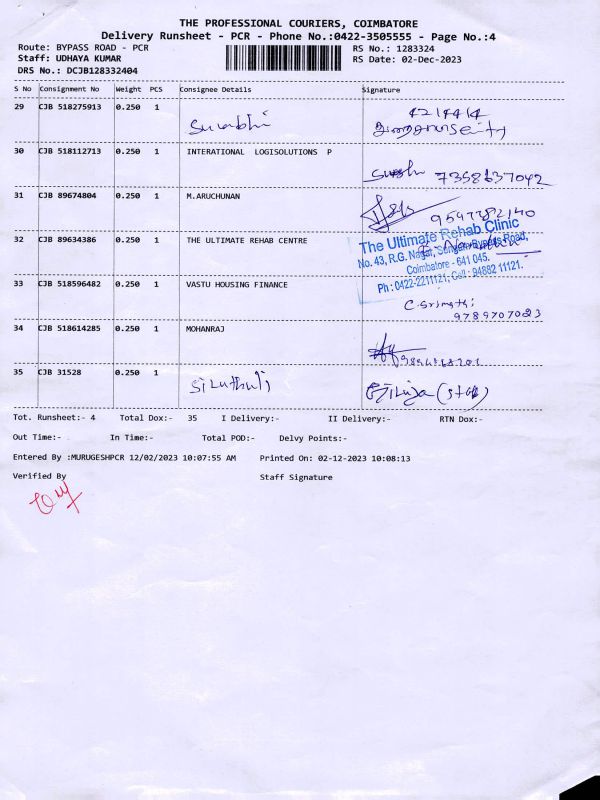 THE PROFESSIONAL COURIERS, COIMBATORE
Delivery Runsheet - PCR - Phone No.:0422-3505555 - Page No.:4
Route: BYPASS ROAD - PCR
RS No.: 1283324
Staff: UDHAYA KUMAR
RS Date: 02-Dec-2023
DRS No.: DCJB128332404
S No Consignment No Weight PCS Consignee Details Signature
29 CJB 518275913 0.250 1 Surabhi 4214414
30 CJB 518112713 0.250 1 INTERATIONAL LOGISOLUTIONS P
7358637042
31 CJB 89674804 0.250 1 M.ARUCHUNAN
9597782140
32 CJB 89634386 0.250 1 THE ULTIMATE REHAB CENTRE
The Ultimate Rehab Clinic
No. 43, R.G. Nagar, Sungam Bypass Road,
Coimbatore - 641 045.
Ph : 0422-2211121, Cell : 94882 11121.
33 CJB 518596482 0.250 1 VASTU HOUSING FINANCE
C.Srimathi
9789707023
34 CJB 518614285 0.250 1 MOHANRAJ
35 CJB 31528 0.250 1 Siruthuli
Tot. Runsheet:- 4 Total Dox:- 35 I Delivery:- II Delivery:- RTN Dox:-
Out Time:- In Time:- Total POD:- Delvy Points:-
Entered By :MURUGESHPCR 12/02/2023 10:07:55 AM Printed On: 02-12-2023 10:08:13
Verified By Staff Signature